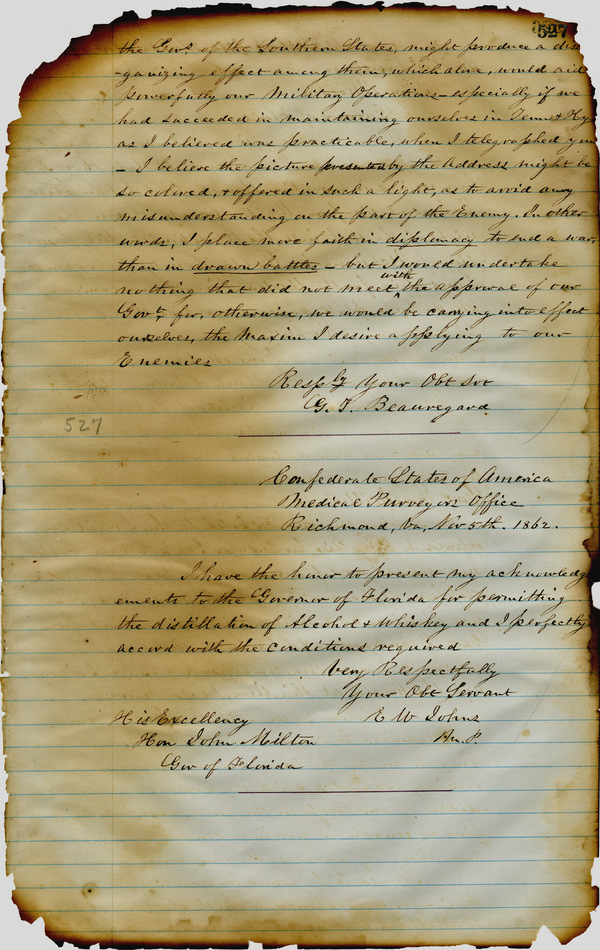 527
the Govs. of the Southern States, might produce a dis
-ganizing effect among them, which alone, would aid
powerfully our Military Operations - especially if we
had succeeded in maintaining ourselves in Tenn & Ky
as I believed was practicable, when I telegraphed you
- I believe the picture presented by the Address might be
so colored, & offered in such a light, as to avoid any
misunderstanding on the part of the Enemy. In other
words, I place more faith in diplomacy to end a war,
than in drawn battles - but I would undertake
nothing that did not meet with the approval of our
Govt, for, otherwise, we would be carrying into effect
ourselves, the Maxim I desire applying to our
Enemies
Resply Your Obt Svt
G. T. Beauregard.
527
Confederate States of America
Medical Purveyors Office
Richmond, Va, Nov 5th. 1862.
I have the honor to present my acknowledg
ements to the Governor of Florida for permitting
the distillation of Alcohol & Whiskey and I perfectly
accord with the conditions required
Very Respectfully
Your Obt Servant
His Excellency
E W Johns
Hon John Milton
Gov of Florida